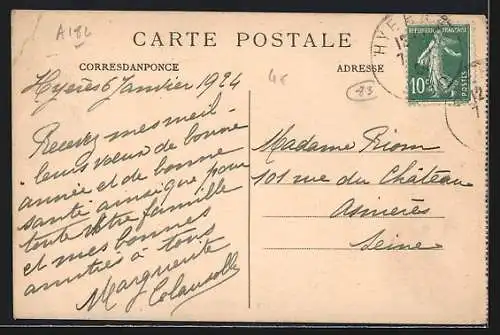 A182
CARTE POSTALE
CORRESDANPONCE
ADRESSE
4€
83
HYÈRES
REPUBLIQUE FRANÇAISE
10c
POSTES
Hyères 6 Janvier 1924
Recevez mes meil-
leurs vœux de bonne
année et de bonne
santé ainsique pour
toute votre famille
et mes bonnes
amitiés à tous
Marguerite
Madame Riom
101 rue du Château
Asnières
Seine